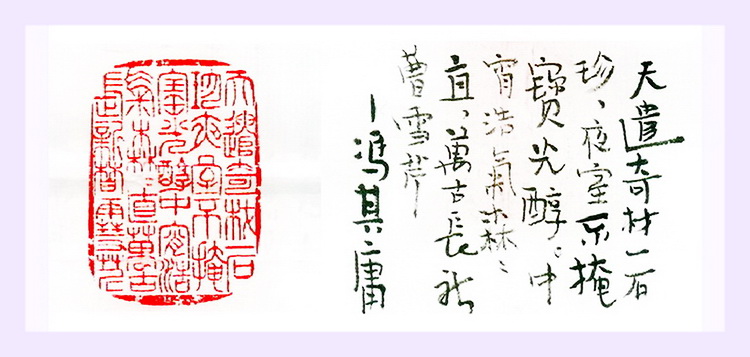 天遣奇材一石
珍、夜室不掩
寶光醇。中
宵浩氣森〻
直、萬古長新
曹雪芹
—馮其庸
天遣奇材一石
珍夜室不掩
寶光醇中宵浩
氣森〻直萬古
長新曹雪芹